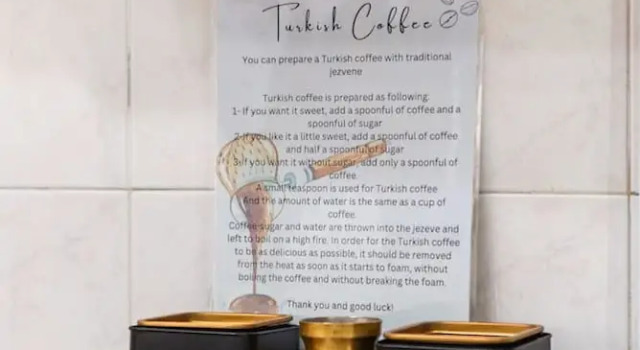 Turkish Coffee
You can prepare a Turkish coffee with traditional
jezvene
Turkish coffee is prepared as following:
1- If you want it sweet, add a spoonful of coffee and a
spoonful of sugar
2-If you like it a little sweet, add a spoonful of coffee
and half a spoonful of sugar
3-If you want it without sugar, add only a spoonful of
coffee.
A small teaspoon is used for Turkish coffee
And the amount of water is the same as a cup of
coffee.
Coffee sugar and water are thrown into the jezeve and
left to boil on a high fire. In order for the Turkish coffee
to be as delicious as possible, it should be removed
from the heat as soon as it starts to foam, without
boiling the coffee and without breaking the foam.
Thank you and good luck!